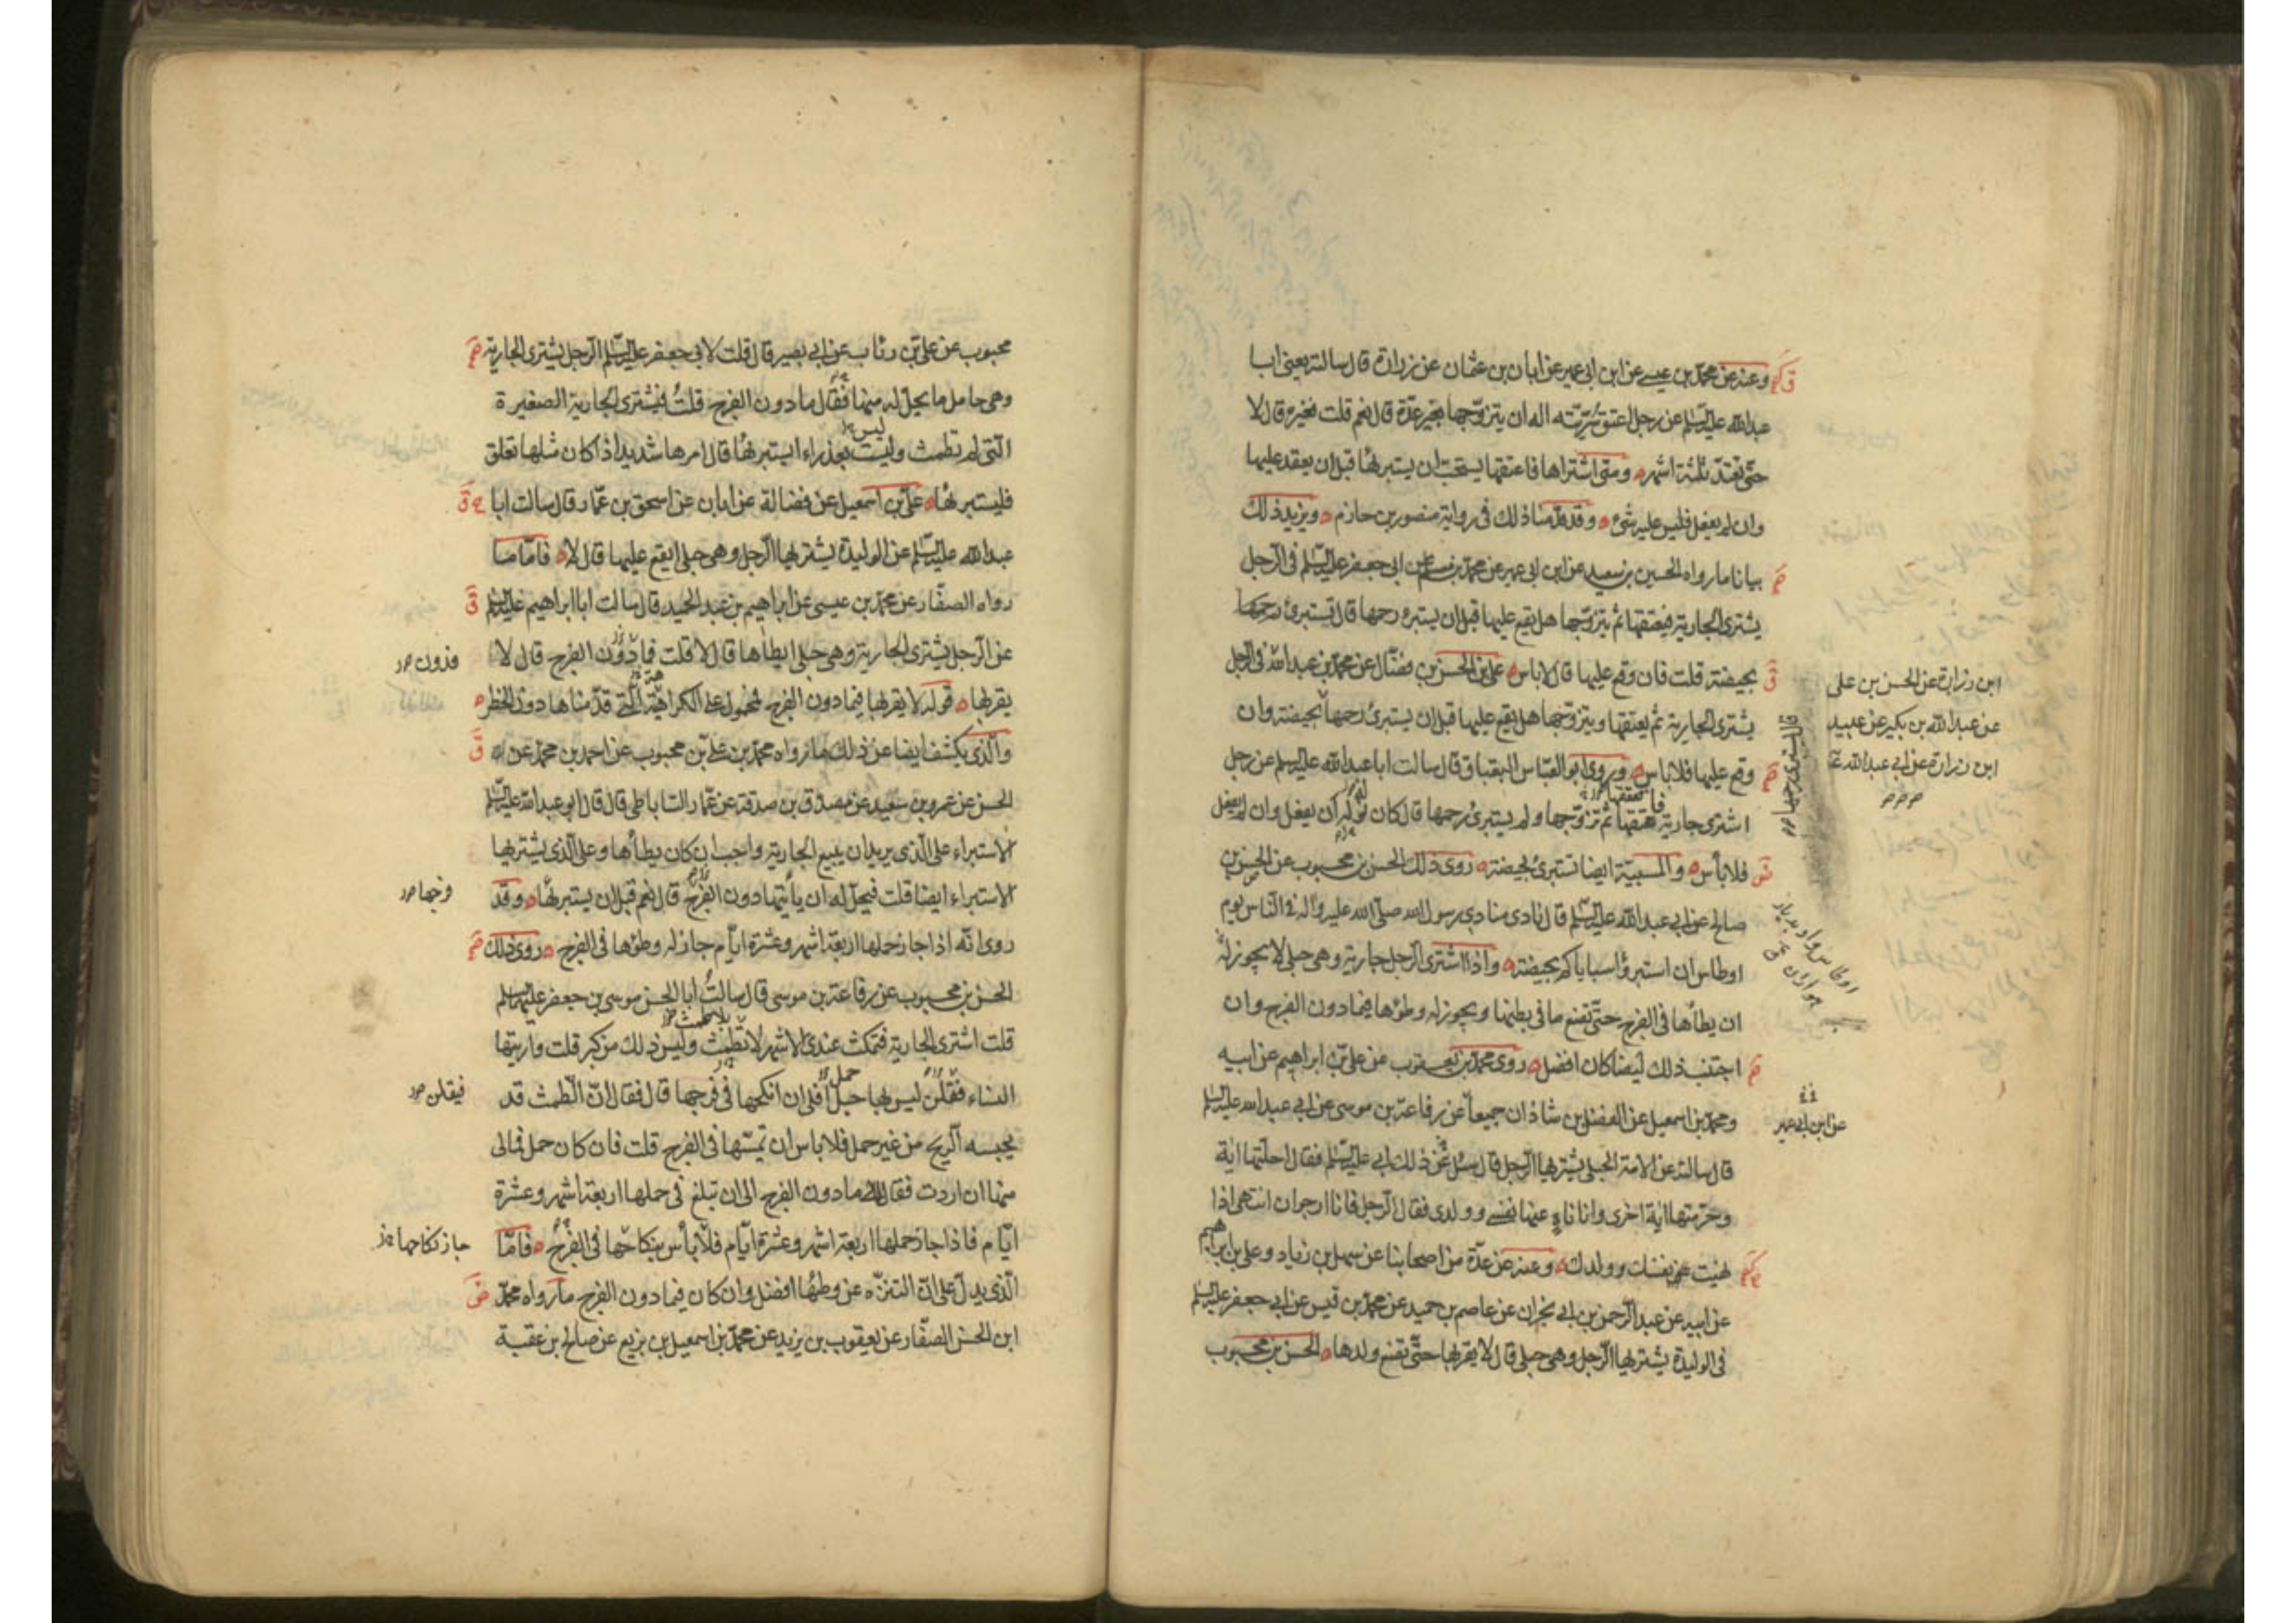 وعنه عن محمد بن عيسى عن ابن ابي عمير عن ابان بن عثمان عن زرارة قال سالته يعني ابا
عبدالله عليه السلم عن رجل اعتق سريته اله ان يتزوجها بغير عدة قال نعم قلت فغيره قال لا
حتى تعتد ثلثة اشهر ومتى اشتراها فاعتقها يستحب ان يستبرئها قبل ان يعقد عليها
وان لم يفعل فليس عليه شئ وقد قدمنا ذلك في رواية منصور بن حازم ويزيد ذلك
بيانا ما رواه الحسين بن سعيد عن ابن ابي عمير عن محمد بن مسلم عن ابي جعفر عليه السلم في الرجل
يشتري الجارية فيعتقها ثم يتزوجها هل يقع عليها قبل ان يستبرء رحمها قال يستبرئ رحمها
بحيضة قلت فان وقع عليها قال لاباس علي بن الحسن بن فضال عن محمد بن عبدالله في الرجل
ابن زرارة عن الحسن بن علي
عن عبدالله بن بكير عن عبيد
ابن زرارة عن ابي عبدالله ع
يشتري الجارية ثم يعتقها ويتزوجها هل يقع عليها قبل ان يستبرئ رحمها بحيضة وان
قال يستبرئ رحمها
وقع عليها فلاباس وروى ابو العباس البقباق قال سالت ابا عبدالله عليه السلم عن رجل
اشترى جارية فاعتقها ثم تزوجها ولم يستبرئ رحمها قال كان له ان يفعل وان لم يفعل
فلاباس والمسبية ايضا تستبرئ بحيضة روى ذلك الحسن بن محبوب عن الحسن بن
صالح عن ابي عبدالله عليه السلم قال نادى منادي رسول الله صلى الله عليه واله في الناس يوم
اوطاس ان استبرؤا سباياكم بحيضة واذا اشترى الرجل جارية وهي حبلى لا يجوز له
ان يطأها في الفرج حتى تضع ما في بطنها ويجوز له وطؤها فيما دون الفرج وان
اجتنب ذلك ايضا كان افضل روى محمد بن يعقوب عن علي بن ابراهيم عن ابيه
ومحمد بن اسمعيل عن الفضل بن شاذان جميعا عن رفاعة بن موسى عن ابي عبدالله عليه السلم
عن ابن ابي عمير
قال سالته عن الامة الحبلى يشتريها الرجل قال سئل عن ذلك ابي عليه السلم فقال احلتها اية
وحرمتها اية اخرى وانا ناه عنها نفسي وولدي فقال الرجل فانا ارجو ان انتهي اذا
نهيت عن نفسك وولدك وعنه عن عدة من اصحابنا عن سهل بن زياد وعلي بن ابراهيم
عن ابيه عن عبدالرحمن بن ابي نجران عن عاصم بن حميد عن محمد بن قيس عن ابي جعفر عليه السلم
في الوليدة يشتريها الرجل وهي حبلى قال لا يقربها حتى تضع ولدها الحسن بن محبوب
محبوب عن علي بن رئاب عن ابي بصير قال قلت لابي جعفر عليه السلم الرجل يشتري الجارية
وهي حامل ما يحل له منها فقال ما دون الفرج قلت فيشتري الجارية الصغيرة
التي لم تطمث وليست بعذراء ايستبرئها قال امرها شديد اذا كان مثلها تعلق
فليستبرئها علي بن اسمعيل عن فضالة عن ابان عن اسحق بن عمار قال سالت ابا
عبدالله عليه السلم عن الوليدة يشتريها الرجل وهي حبلى ايقع عليها قال لا فاما ما
رواه الصفار عن محمد بن عيسى عن ابراهيم بن عبدالحميد قال سالت ابا ابراهيم عليه السلم
عن الرجل يشتري الجارية وهي حبلى ايطأها قال لا قلت فما دون الفرج قال لا
فدون
يقربها قوله لا يقربها فيما دون الفرج محمول على الكراهية التي قدمناها دون الحظر
والذي يكشف ايضا عن ذلك ما رواه محمد بن علي بن محبوب عن احمد بن محمد عن
الحسن عن عمرو بن سعيد عن مصدق بن صدقة عن عمار الساباطي قال قال ابو عبدالله عليه السلم
الاستبراء على الذي يريد ان يبيع الجارية واجب ان كان يطأها وعلى الذي يشتريها
الاستبراء ايضا قلت فيحل له ان ياتيها دون الفرج قال نعم قبل ان يستبرئها وقد
فرجها
روى انه اذا جاز حملها اربعة اشهر وعشرة ايام جاز له وطؤها في الفرج روى ذلك
الحسن بن محبوب عن رفاعة بن موسى قال سالت ابا الحسن موسى بن جعفر عليهما السلم
قلت اشتري الجارية فتمكث عندي الاشهر لا تطمث وليس ذلك من كبر قلت واريتها
النساء فقلن ليس بها حبل افلي ان انكحها في فرجها قال فقال ان الطمث قد
فيقلن
يحبسه الريح من غير حمل فلاباس ان تمسها في الفرج قلت فان كان حمل فمالي
منها ان اردت فقال لك ما دون الفرج الى ان تبلغ في حملها اربعة اشهر وعشرة
ايام فاذا جاز حملها اربعة اشهر وعشرة ايام فلا بأس بنكاحها في الفرج فاما
جاز نكاحها
الذي يدل على ان التنزه عن وطئها افضل وان كان فيما دون الفرج ما رواه محمد
ابن الحسن الصفار عن يعقوب بن يزيد عن محمد بن اسمعيل بن بزيع عن صالح بن عقبة